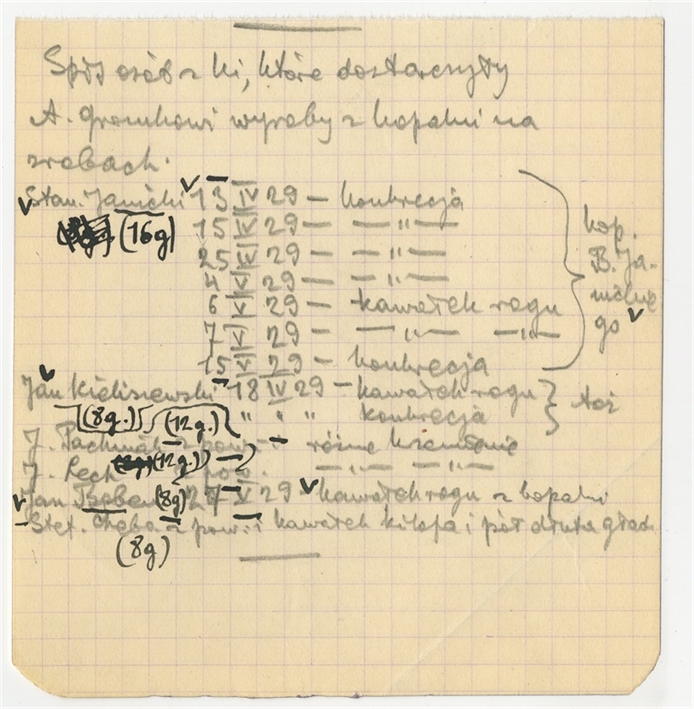 Spis osób z Ki, które dostarczyły
A. Gromkowi wyroby z kopalni na
zrębach.
Stan. Janicki 13 IV 29 — konkrecja
(16g) 15 IV 29 — — " —
25 IV 29 — — " —
4 V 29 — — " —
6 V 29 — kawałek rogu
7 V 29 — — " — — " —
15 V 29 — konkrecja
kop.
B. Ja-
nickie
go
Jan Kieliszewski 18 IV 29 — kawałek rogu
" " " konkrecja
też
(8g.) (12g.)
J. Pachniak z pow. — różne krzemienie
J. Lech (12g.) z pow. — " — — " —
Jan (8g) 27 V 29 kawałek rogu z kopalni
Stef. Cheba z pow. : kawałek kilofa i pół dłuta gładz.
(8g)